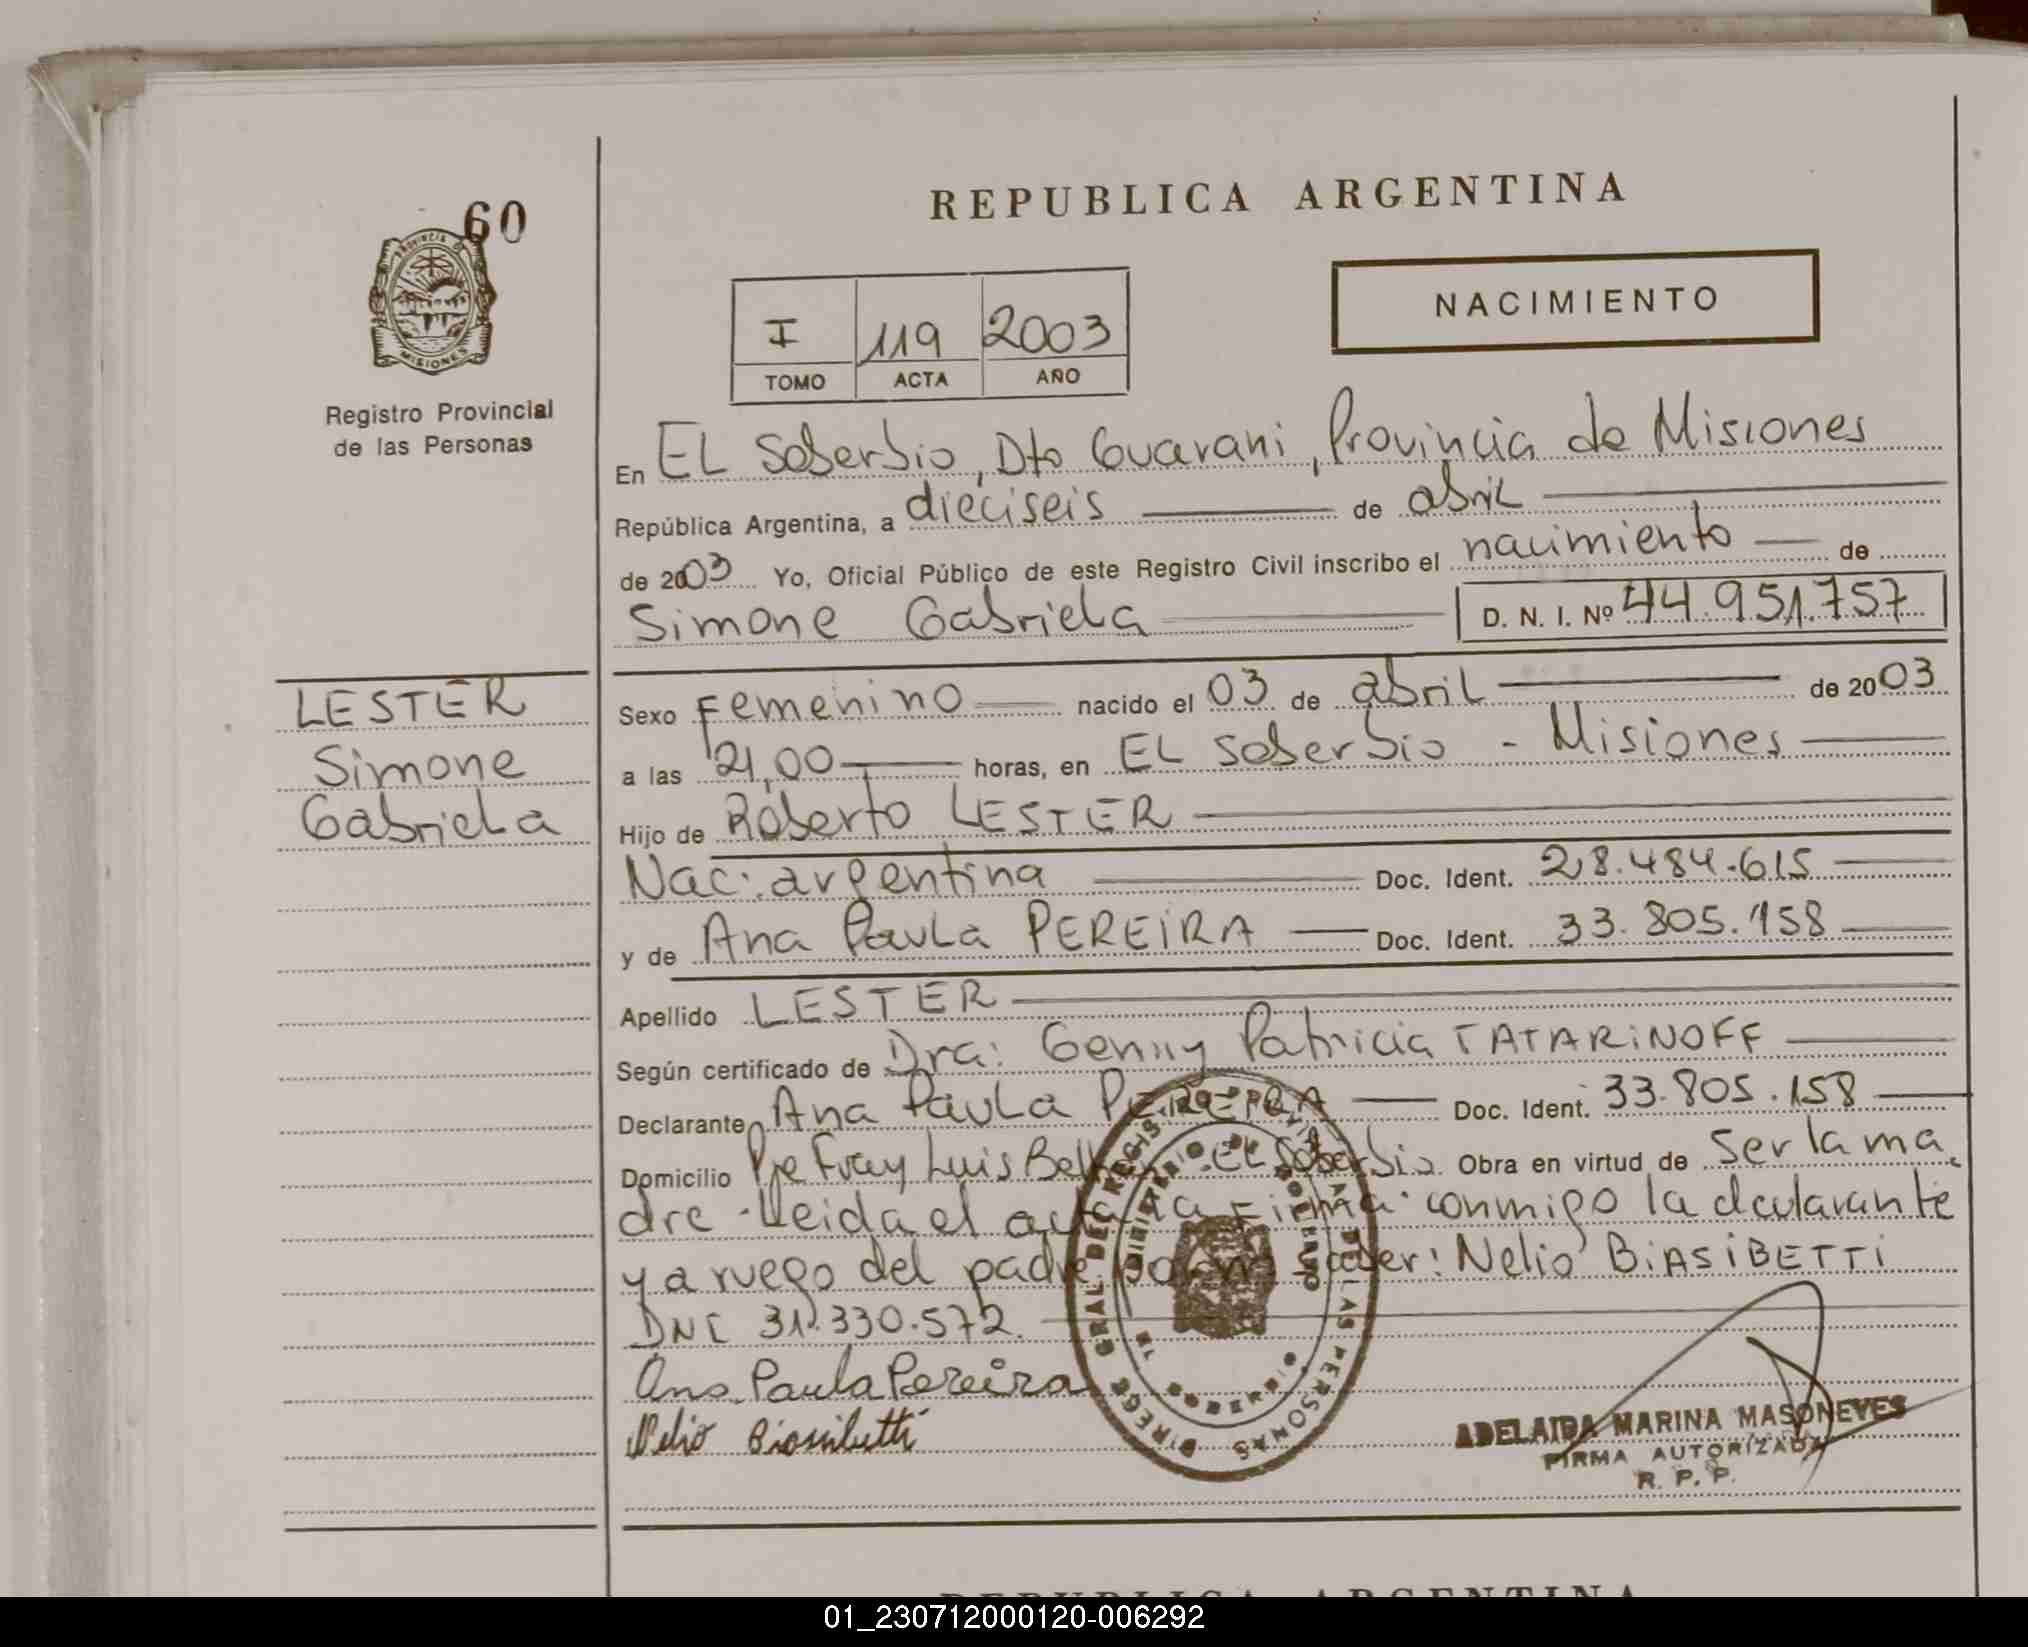 60
PROVINCIA DE
MISIONES
Registro Provincial
de las Personas
REPUBLICA ARGENTINA
I 119 2003
TOMO ACTA AÑO
NACIMIENTO
En EL Soberbio, Dto Guarani, Provincia de Misiones
República Argentina, a dieciseis de abril
de 2003 Yo, Oficial Público de este Registro Civil inscribo el nacimiento de
Simone Gabriela D. N. I. Nº 44.951.757
LESTER
Simone
Gabriela
Sexo Femenino nacido el 03 de abril de 2003
a las 21,00 horas, en EL Soberbio - Misiones
Hijo de Roberto LESTER
Nac: argentina Doc. Ident. 28.484.615
y de Ana Paula PEREIRA Doc. Ident. 33.805.158
Apellido LESTER
Según certificado de Dra: Genny Patricia TATARINOFF
Declarante Ana Paula PEREIRA Doc. Ident. 33.805.158
Domicilio Pje Fray Luis EL Soberbio. Obra en virtud de ser la ma
dre - Leida el acta la Firma conmigo la declarante
y a ruego del padre por no saber: Nelio BIASIBETTI
DNI 31.330.572.
Ana Paula Pereira
Nelio Biasibetti
ADELAIDA MARINA MASONEVES
FIRMA AUTORIZADA
R. P. P.
REPUBLICA ARGENTINA
01_230712000120-006292